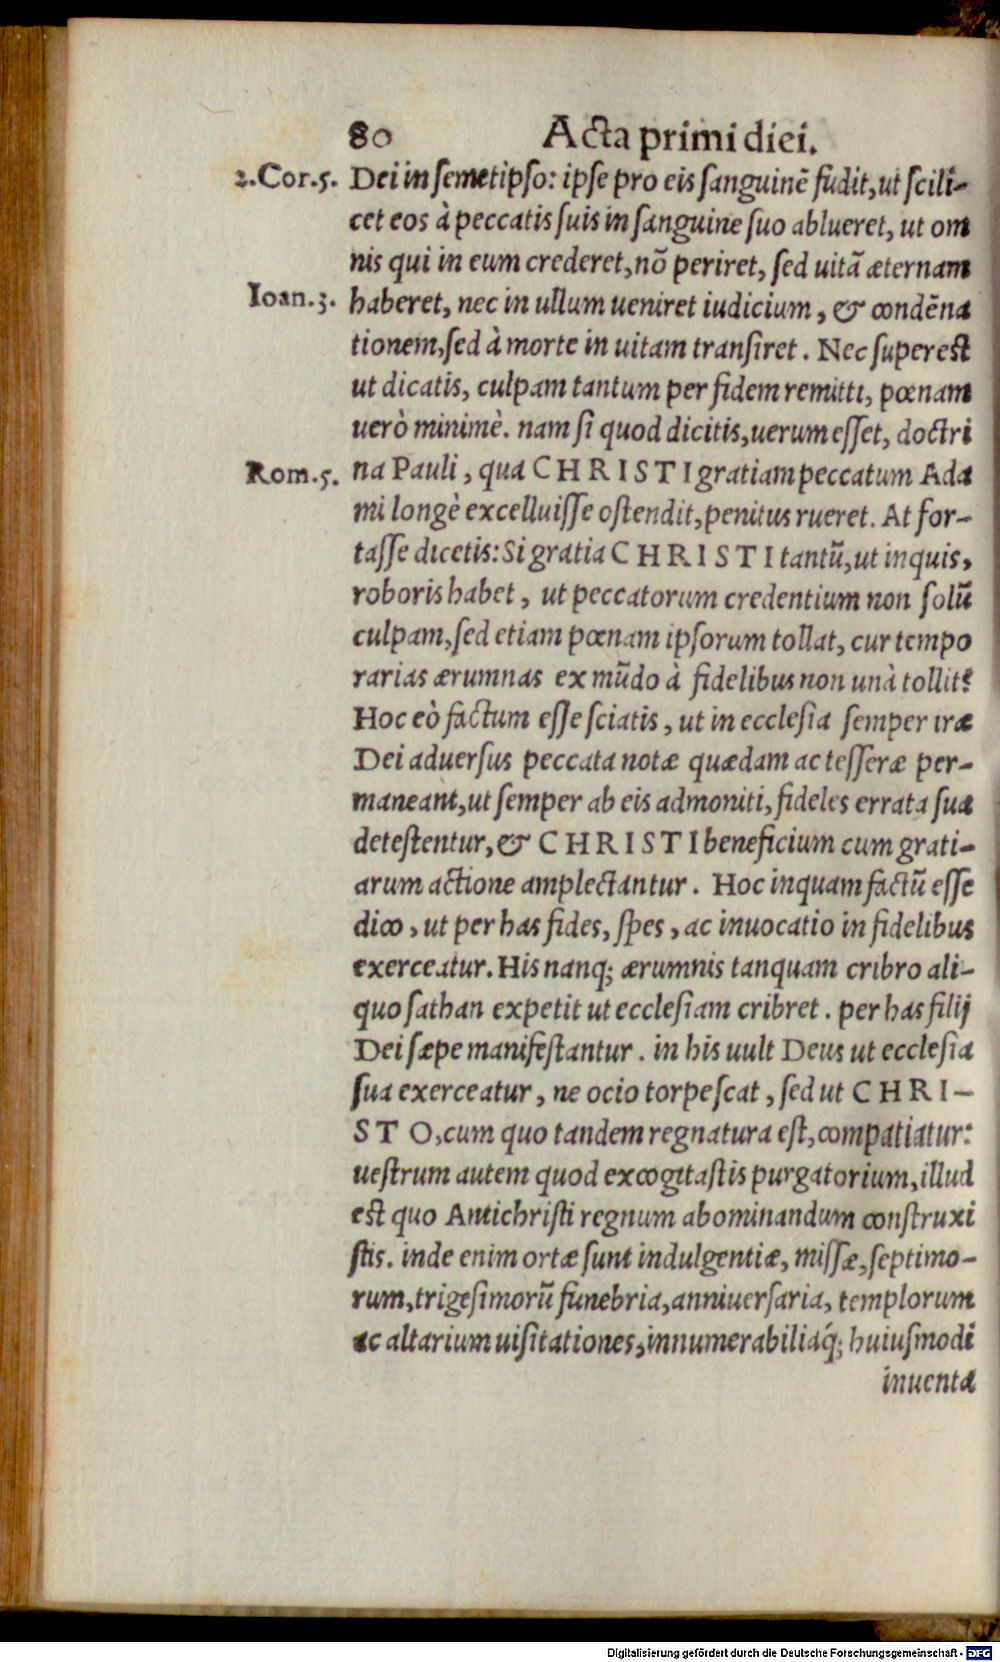 80 Acta primi diei.
2.Cor.5. Dei in semetipso: ipse pro eis sanguinē fudit, ut scili-
cet eos à peccatis suis in sanguine suo ablueret, ut om
nis qui in eum crederet, nō periret, sed uitā æternam
Ioan.3. haberet, nec in ullum ueniret iudicium, & condēna
tionem, sed à morte in uitam transiret. Nec superest
ut dicatis, culpam tantum per fidem remitti, pœnam
uerò minimè. nam si quod dicitis, uerum esset, doctri
Rom.5. na Pauli, qua CHRISTI gratiam peccatum Ada
mi longè excelluisse ostendit, penitus rueret. At for-
tasse dicetis: Si gratia CHRISTI tantū, ut inquis,
roboris habet, ut peccatorum credentium non solū
culpam, sed etiam pœnam ipsorum tollat, cur tempo
rarias ærumnas ex mūdo à fidelibus non unà tollit?
Hoc eò factum esse sciatis, ut in ecclesia semper iræ
Dei aduersus peccata notæ quædam ac tesseræ per-
maneant, ut semper ab eis admoniti, fideles errata sua
detestentur, & CHRISTI beneficium cum grati-
arum actione amplectantur. Hoc inquam factū esse
dico, ut per has fides, spes, ac inuocatio in fidelibus
exerceatur. His nanq; ærumnis tanquam cribro ali-
quo sathan expetit ut ecclesiam cribret. per has filij
Dei sæpe manifestantur. in his uult Deus ut ecclesia
sua exerceatur, ne ocio torpescat, sed ut CHRI-
STO, cum quo tandem regnatura est, compatiatur:
uestrum autem quod excogitastis purgatorium, illud
est quo Antichristi regnum abominandum construxi
stis. inde enim ortæ sunt indulgentiæ, missæ, septimo-
rum, trigesimorū funebria, anniuersaria, templorum
ac altarium uisitationes, innumerabiliaq́; huiusmodi
inuenta
Digitalisierung gefördert durch die Deutsche Forschungsgemeinschaft - DFG